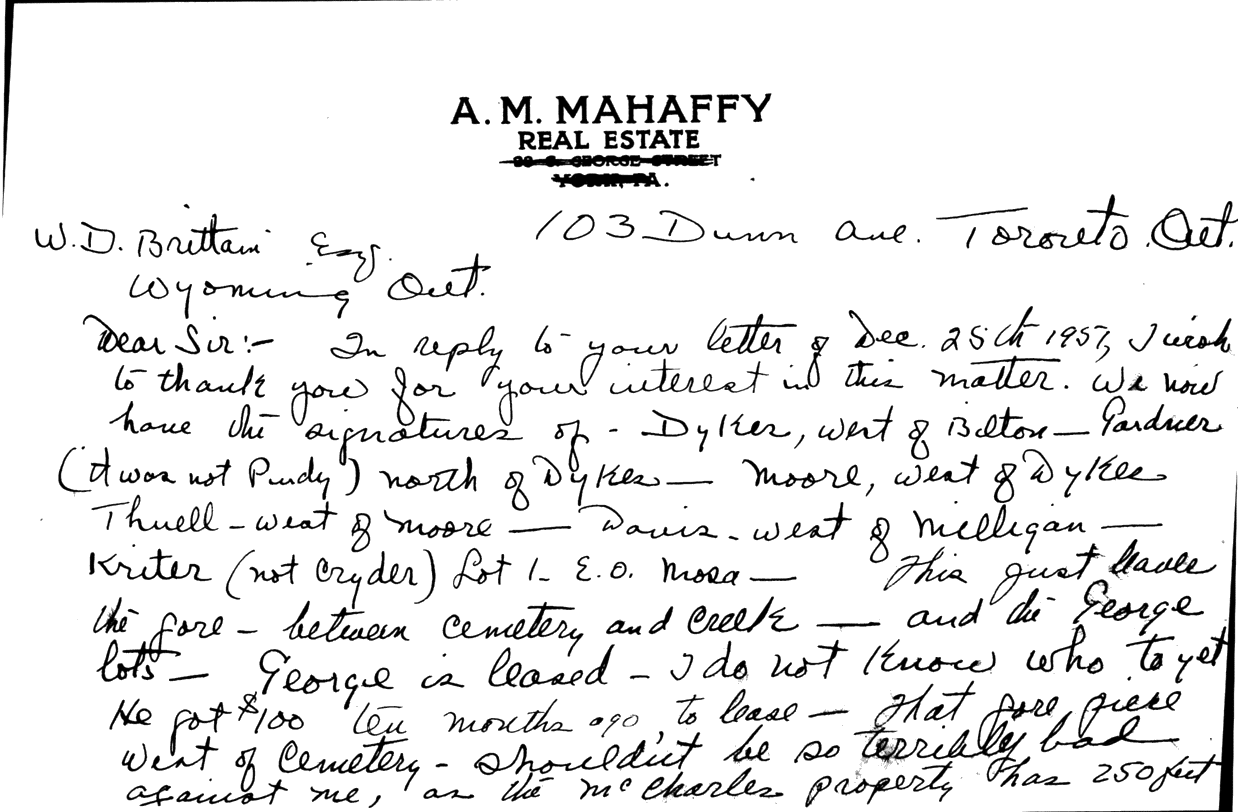 A. M. MAHAFFY
REAL ESTATE
GEORGE STREET
YORK, PA.
103 Dunn Ave. Toronto Ont.
W.D. Brittain Esq.
Wyoming Ont.
Dear Sir:- In reply to your letter of Dec. 25th 1957, I wish
to thank you for your interest in this matter. We now
have the signatures of - Dykes, west of Bolton — Gardner
(it was not Purdy) north of Dykes — Moore, west of Dykes
Thuell - west of Moore — Davis - west of Milligan —
Kriter (not Cryder) Lot 1 - E.O. Mosa — This just leaves
the gore - between cemetery and creek — and the George
lots — George is leased - I do not know who to yet
He got $100 ten months ago, to lease — That gore piece
west of Cemetery - shouldn't be so terribly bad
against me, as the McCharles property has 250 feet